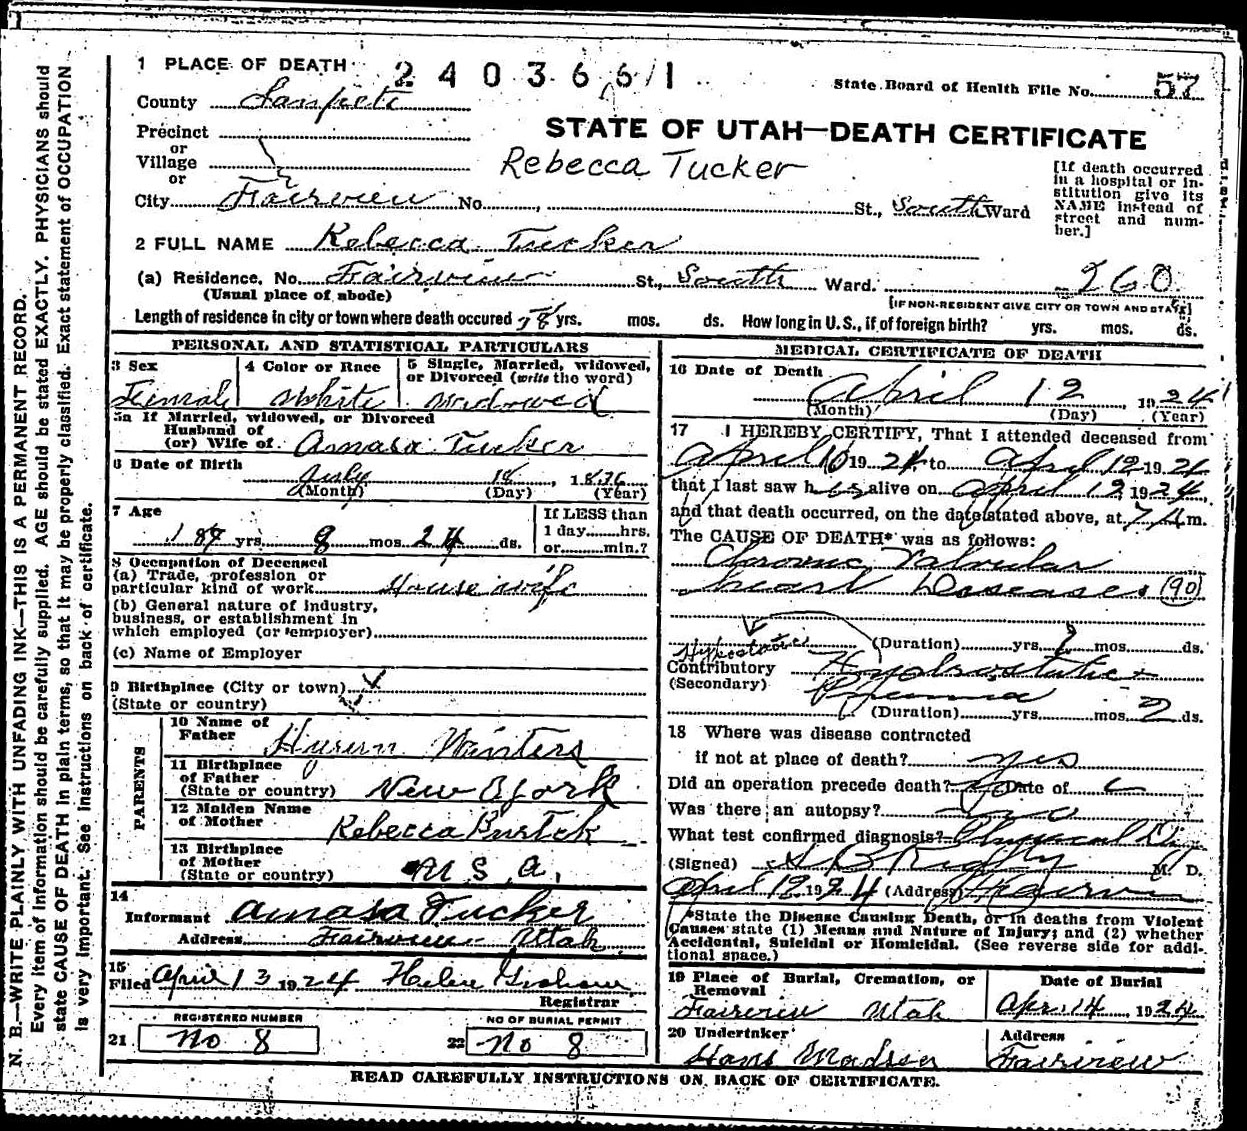 1 PLACE OF DEATH 2403661
State Board of Health File No. 57
County Sanpete
STATE OF UTAH—DEATH CERTIFICATE
Precinct
or
Village
Rebecca Tucker
or
City Fairview No. , St., South Ward
[If death occurred in a hospital or in-
stitution give its
NAME instead of
street and num-
ber.]
2 FULL NAME Rebecca Tucker
(a) Residence, No. Fairview St., South Ward. 260
(Usual place of abode) [IF NON-RESIDENT GIVE CITY OR TOWN AND STATE]
Length of residence in city or town where death occured 78 yrs. mos. ds. How long in U. S., if of foreign birth? yrs. mos. ds.
PERSONAL AND STATISTICAL PARTICULARS
3 Sex 4 Color or Race 5 Single, Married, widowed,
or Divorced (write the word)
Female White Widowed
5a If Married, widowed, or Divorced
Husband of
(or) Wife of Amasa Tucker
6 Date of Birth
July 18, 1836
(Month) (Day) (Year)
7 Age If LESS than
1 day hrs.
or min.?
yrs. 8 mos. 24 ds.
8 Occupation of Deceased
(a) Trade, profession or
particular kind of work Housewife
(b) General nature of industry,
business, or establishment in
which employed (or employer)
(c) Name of Employer
9 Birthplace (City or town)
(State or country)
PARENTS
10 Name of
Father Hyrum Winters
11 Birthplace
of Father
(State or country) New York
12 Maiden Name
of Mother Rebecca Burtck
13 Birthplace
of Mother
(State or country) U. S. A.
14
Informant Amasa Tucker
Address Fairview Utah
15
Filed April 13 1924 Helen Graham
Registrar
REGISTERED NUMBER NO OF BURIAL PERMIT
21 No 8 22 No 8
MEDICAL CERTIFICATE OF DEATH
16 Date of Death
April 12, 1924
(Month) (Day) (Year)
17 I HEREBY CERTIFY, That I attended deceased from
April 10 1924 to April 12 1924
that I last saw her alive on April 12 1924,
and that death occurred, on the date stated above, at 7 A m.
The CAUSE OF DEATH* was as follows:
Chronic Valvular
heart Diseases (90)
(Duration) yrs. 2 mos. ds.
Hypostatic
Contributory Hydrostatic
(Secondary) Pneumonia
(Duration) yrs. mos. 2 ds.
18 Where was disease contracted
if not at place of death? yes
Did an operation precede death? No Date of
Was there an autopsy? no
What test confirmed diagnosis? Physical
(Signed) M. D.
April 12 1924 (Address) Fairview
*State the Disease Causing Death, or in deaths from Violent
Causes state (1) Means and Nature of Injury; and (2) whether
Accidental, Suicidal or Homicidal. (See reverse side for addi-
tional space.)
19 Place of Burial, Cremation, or
Removal Date of Burial
Fairview Utah Apr. 14, 1924
20 Undertaker Address
Hans Madsen Fairview
READ CAREFULLY INSTRUCTIONS ON BACK OF CERTIFICATE.
N. B.—WRITE PLAINLY WITH UNFADING INK—THIS IS A PERMANENT RECORD.
Every item of information should be carefully supplied. AGE should be stated EXACTLY. PHYSICIANS should
state CAUSE OF DEATH in plain terms, so that it may be properly classified. Exact statement of OCCUPATION
is very important. See instructions on back of certificate.